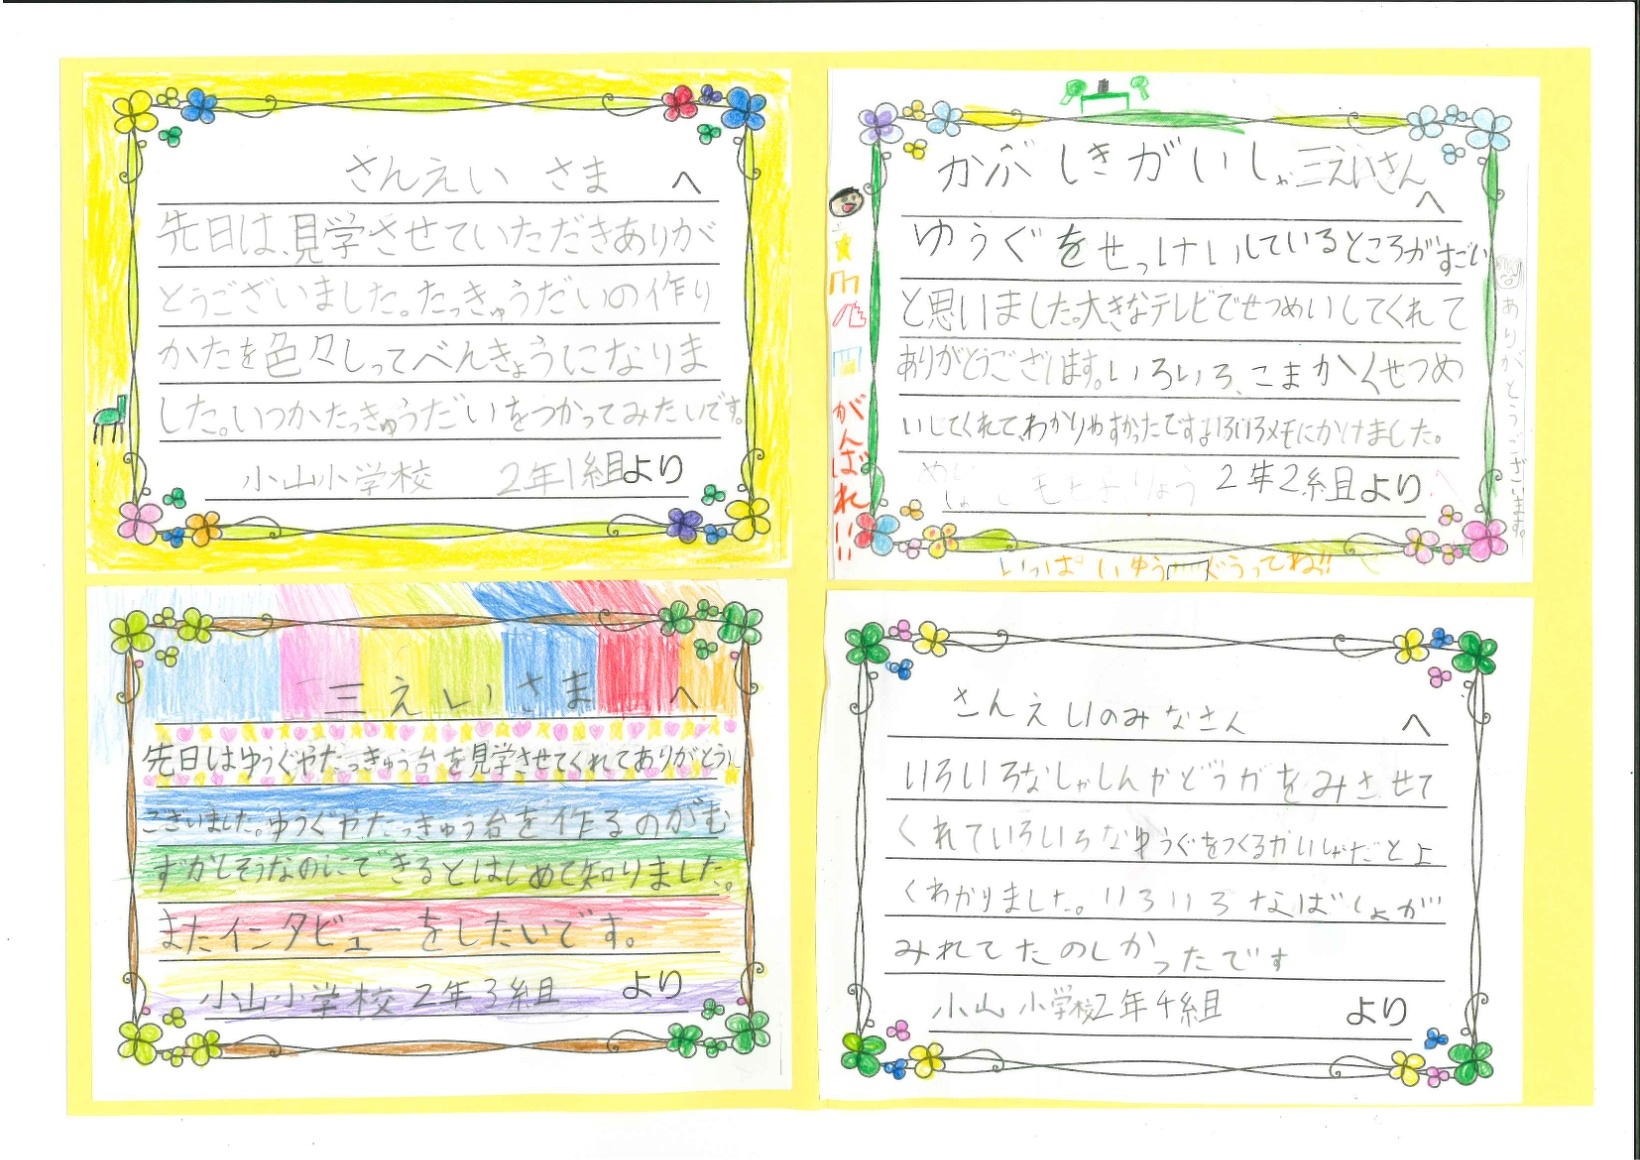 さんえい さま へ
先日は、見学させていただきありが
とうございました。たっきゅうだいの作り
かたを色々しってべんきょうになりま
した。いつかたっきゅうだいをつかってみたいです。
小山小学校 2年1組より
かぶしきがいしゃ三えいさん
へ
ゆうぐをせっけいしているところがすごい
と思いました。大きなテレビでせつめいしてくれて
ありがとうございます。いろいろ、こまかくせつめ
いしてくれて、わかりやすかったですよ。いろいろメモにかけました。
2年2組より
がんばれ!!
ありがとうございます。
いっぱいゆうぐうってね!!
三えいさま へ
先日はゆうぐやたっきゅう台を見学させてくれてありがとう
ございました。ゆうぐやたっきゅう台を作るのがむ
ずかしそうなのにできるとはじめて知りました。
またインタビューをしたいです。
小山小学校2年3組 より
さんえいのみなさん へ
いろいろなしゃしんやどうがをみさせて
くれていろいろなゆうぐをつくるかいしゃだとよ
くわかりました。いろいろなばしょが
みれてたのしかったです
小山小学校2年4組 より